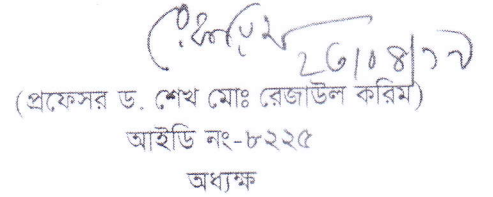 (প্রফেসর ড. শেখ মোঃ রেজাউল করিম)
আইডি নং-৮২২৫
অধ্যক্ষ